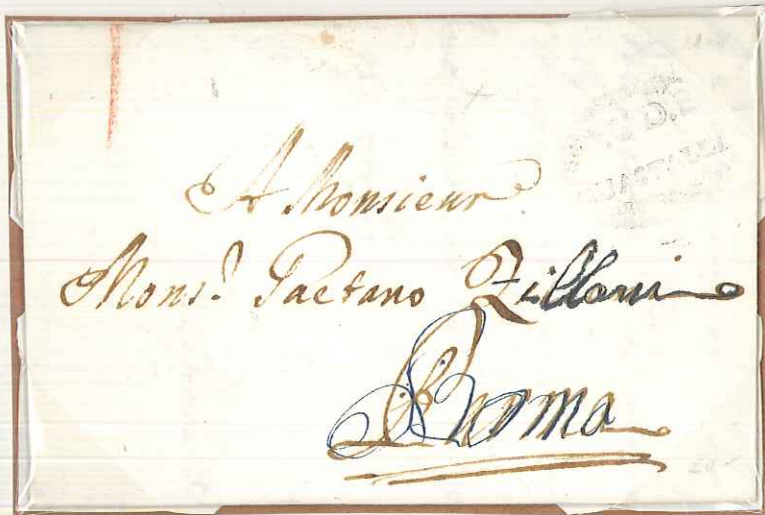 A Monsieur
Mons.r Gaetano Zillani
Parma